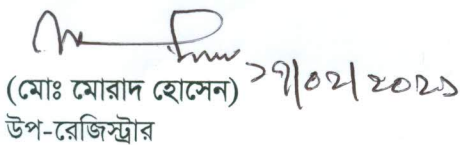 (মোঃ মোরাদ হোসেন) ২৭/০২/২০২১
উপ-রেজিস্ট্রার